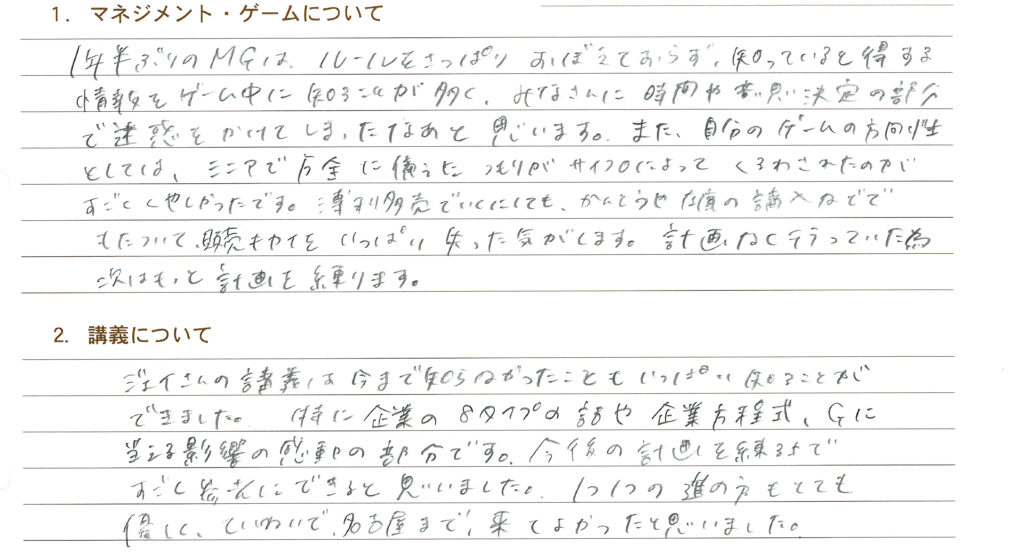 1. マネジメント・ゲームについて
1年半ぶりのMGは、ルールをさっぱりおぼえておらず、知っていると得する
情報をゲーム中に知ることが多く、みなさんに時間や意思決定の部分
で迷惑をかけてしまったなあと思います。また、自分のゲームの方向性
としては、ミニアで万全に備えたつもりがサイコロによってくるわされたのが
すごくくやしかったです。薄利多売でいくにしても、かんとうや在庫の購入などで
もたついて、販売キカイをいっぱい失った気がします。計画なく行っていた為
次はもっと計画を練ります。
2. 講義について
ジェイさんの講義は今まで知らなかったこともいっぱい知ることが
できました。特に企業の8タイプの話や企業方程式、Gに
当える影響の感動の部分です。今後の計画を練る上で
すごく参考にできると思いました。1つ1つの進め方もとても
優しく、ていねいで、名古屋まで、来てよかったと思いました。